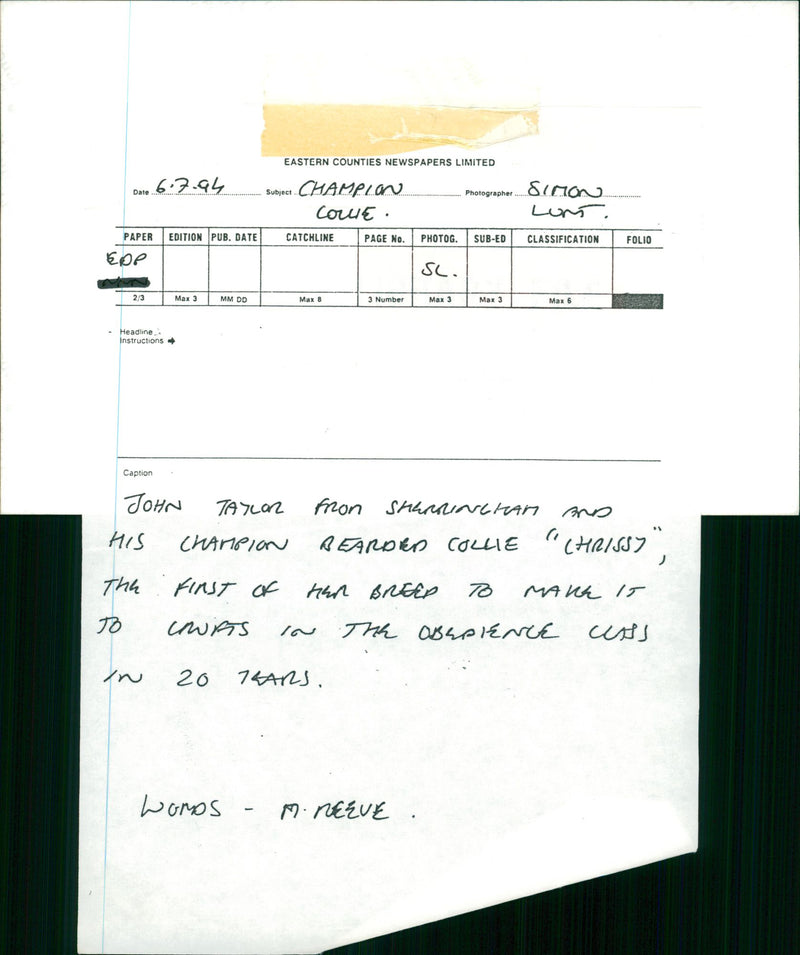 EASTERN COUNTIES NEWSPAPERS LIMITED
Date 6.7.94 Subject CHAMPION Photographer SIMON
COLLIE. LUNT.
PAPER EDITION PUB. DATE CATCHLINE PAGE No. PHOTOG. SUB-ED CLASSIFICATION FOLIO
EDP SL.
2/3 Max 3 MM DD Max 8 3 Number Max 3 Max 3 Max 6
Headline
Instructions
Caption
JOHN TAYLOR FROM SHERRINGHAM AND
HIS CHAMPION BEARDED COLLIE "CHRISSY",
THE FIRST OF HER BREED TO MAKE IT
TO CRUFTS IN THE OBEDIENCE CLASS
IN 20 YEARS.
WORDS - M. REEVE.